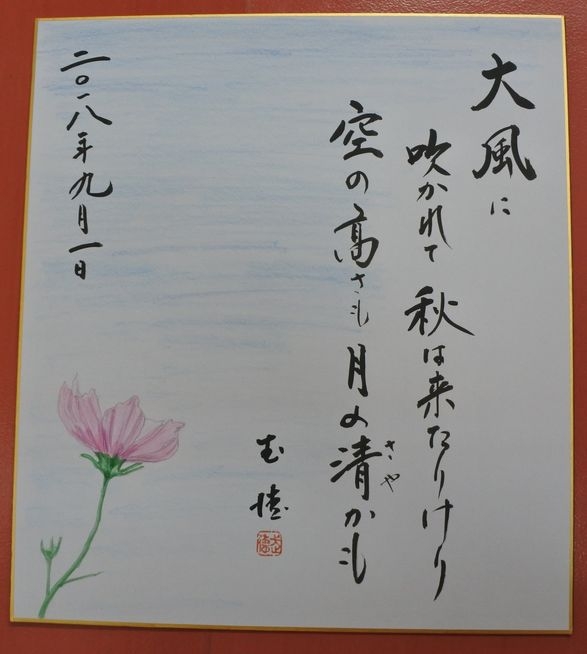 大風に
吹かれて 秋は来たりけり
空の高さも 月の清かも
さや
武徳
二〇一八年九月一日